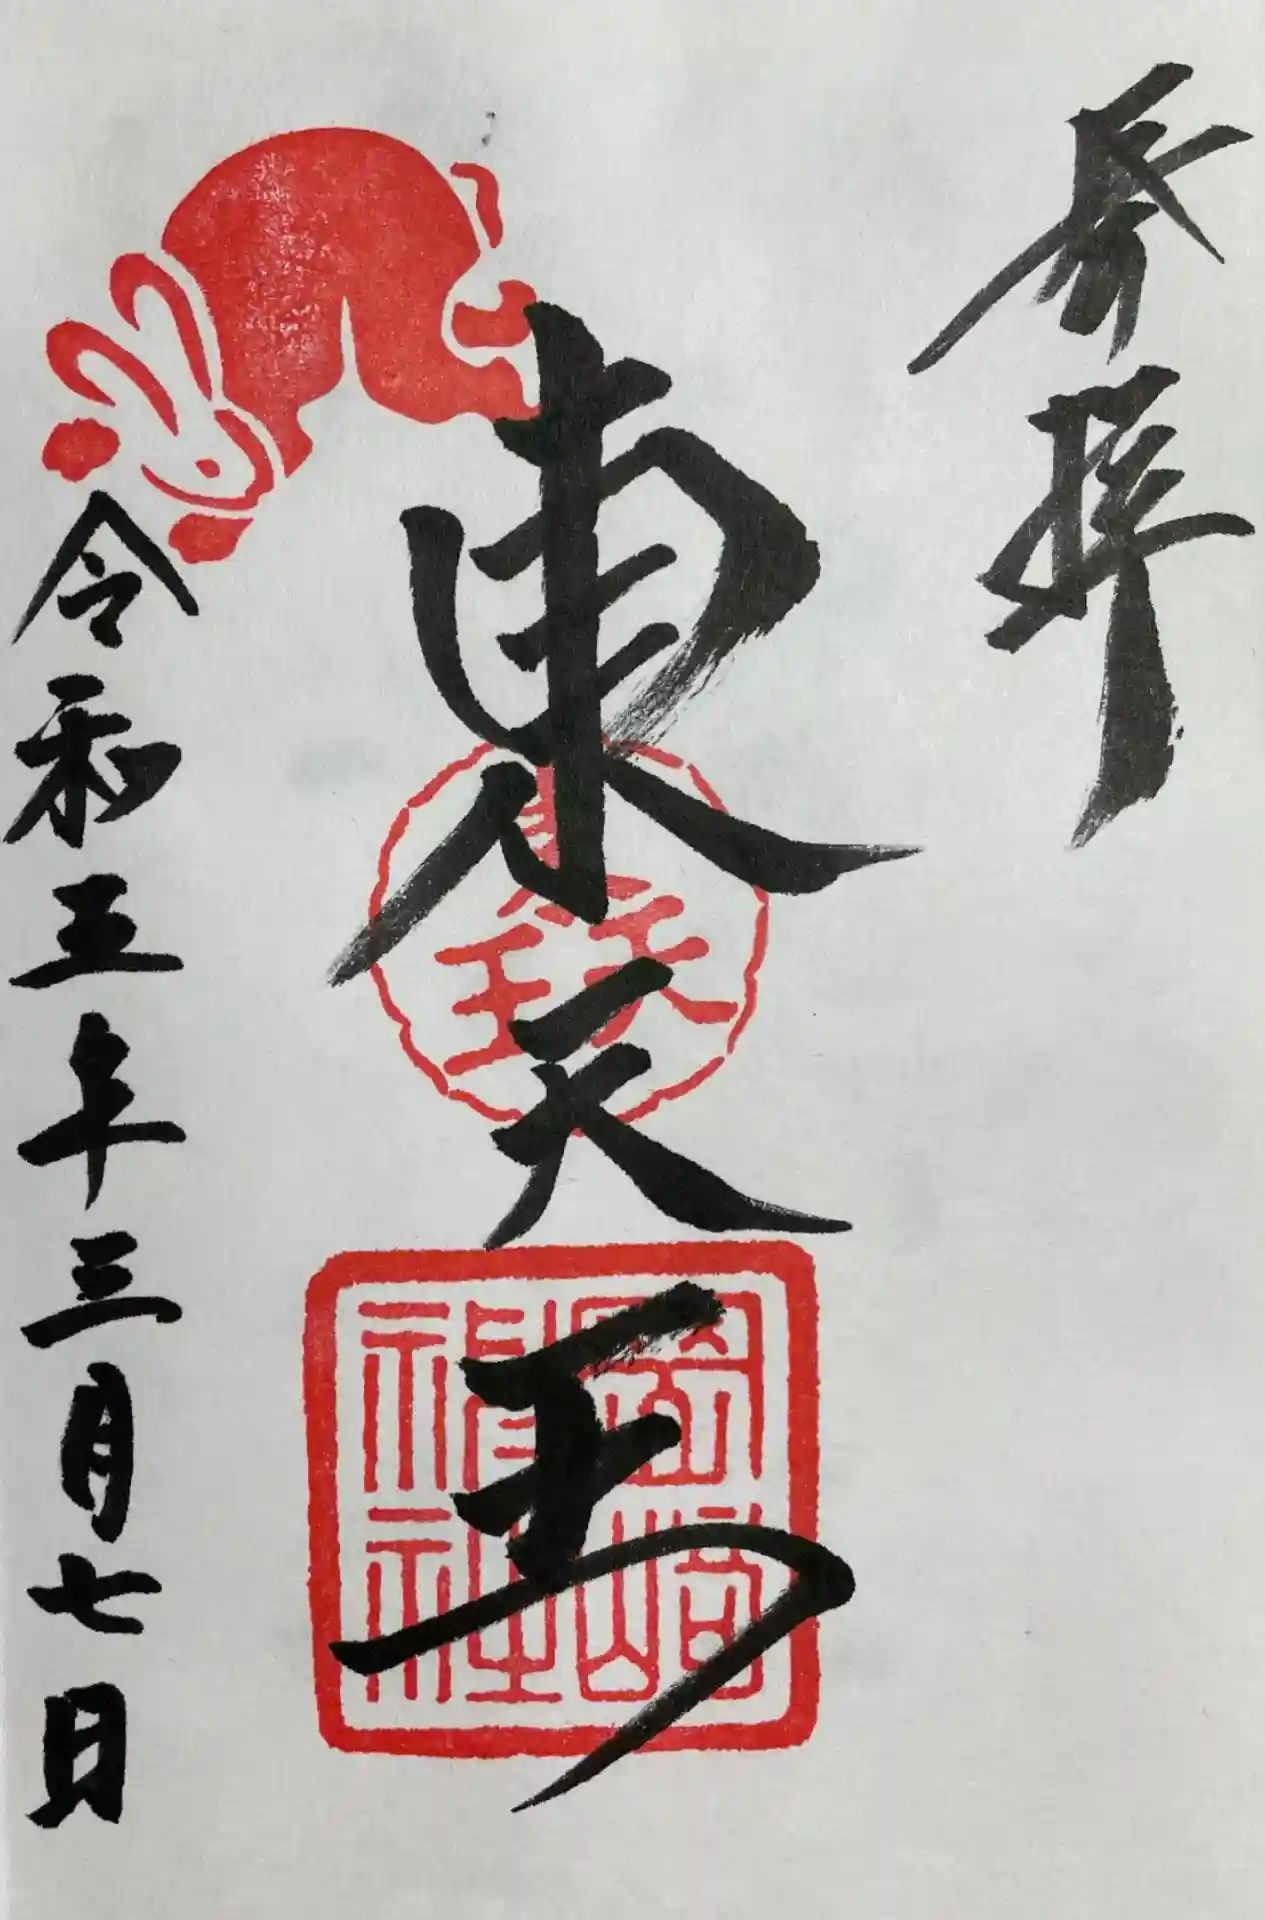 参拝
東天王
岡崎神社
令和五年三月七日